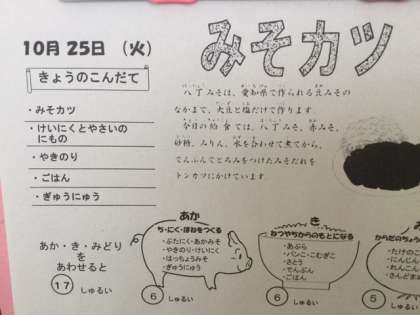 10月 25日 （火）
みそカツ
きょうのこんだて
・みそカツ
・けいにくとやさいの
にもの
・やきのり
・ごはん
・ぎゅうにゅう
八丁みそは、愛知県で作られる豆みその
なかまで、大豆と塩だけで作ります。
今日の給食では、八丁みそ、赤みそ、
砂糖、みりん、水を合わせて煮てから、
でんぷんでとろみをつけたみそだれを
トンカツにかけています。
あか・き・みどり
をあわせると
17 しゅるい
あか
ち・にく・ほねをつくる
・ぶたにく・あかみそ
・やきのり・けいにく
・はっちょうみそ
・ぎゅうにゅう
6 しゅるい
き
ねつやちからのもとになる
・あぶら
・パンこ・こむぎこ
・さとう
・でんぷん
・ごはん
6 しゅるい
み
からだのちょう
・たけのこ
・にんじん
・れんこん
・さんどま
5